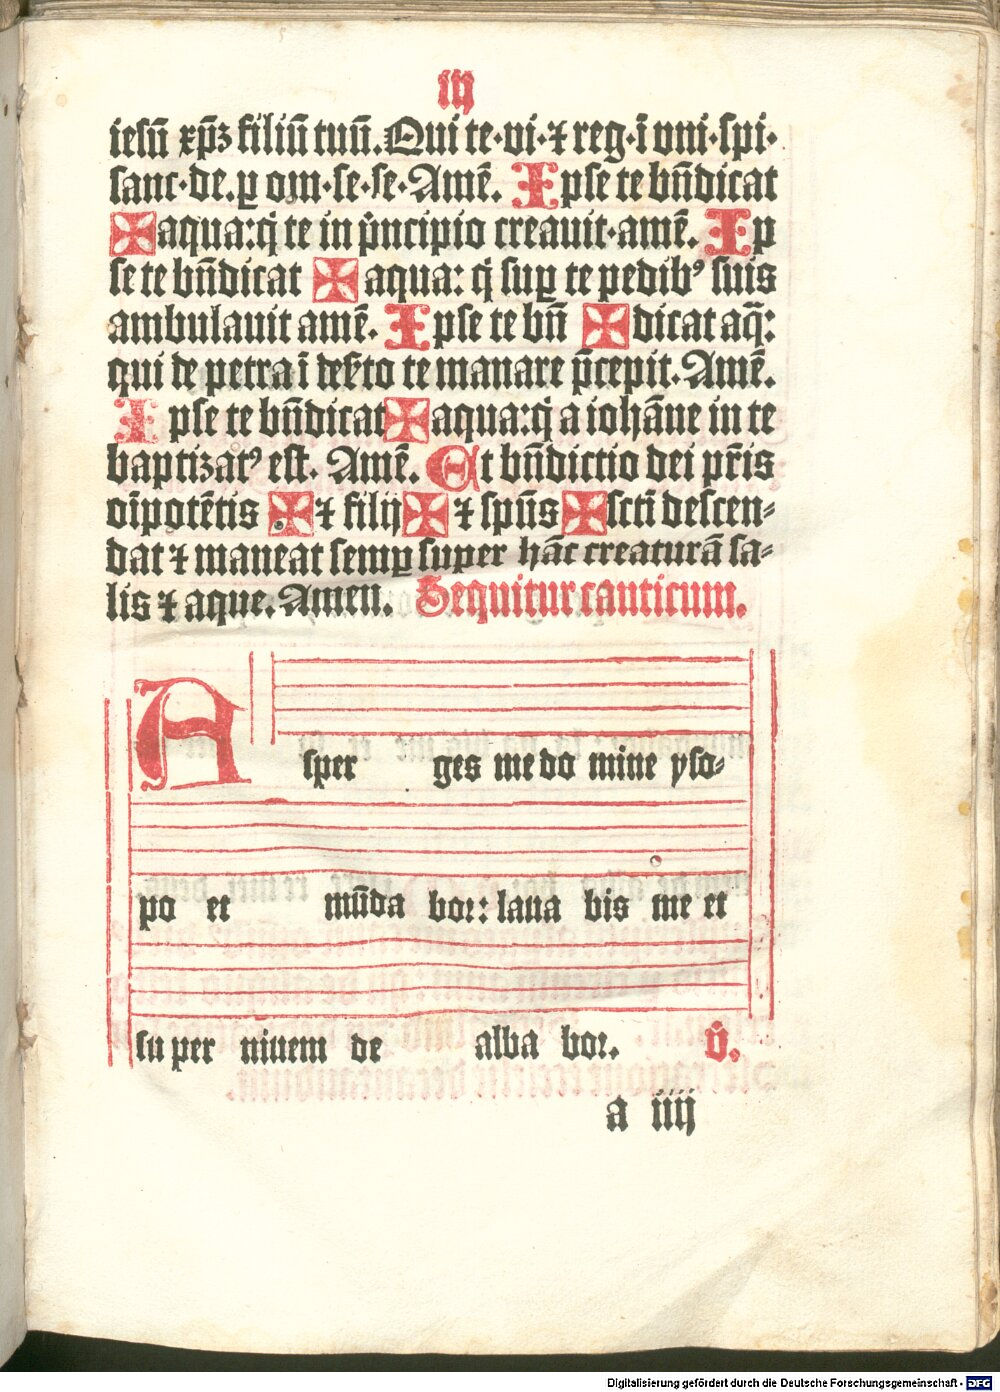 iij
iesū xp̄ꝫ filiū tuū. Qui te·vi·⁊ reg·ī vni·spi·
sanc·de·ꝑ om̄·se·se·Amē. Ipse te bn̄dicat
✠ aqua: q̇ te in pͥncipio creauit·amē. Ip
se te bn̄dicat ✠ aqua: q̇ suꝑ te pedibꝰ suis
ambulauit amē. Ipse te bn̄ ✠ dicat aq̄:
qui de petra ī deẜto te manare p̄cepit. Amē.
Ipse te bn̄dicat ✠ aqua: q̇ a iohāne in te
baptizatꝰ est. Amē. Et bn̄dictio dei pr̄is
oīpotētis ✠ ⁊ filij ✠ ⁊ spūs ✠ scti descen-
dat ⁊ maneat semꝑ super hāc creaturā sa-
lis ⁊ aque. Amen. Sequitur canticum.
Asper ges me do mine yso-
po et mūda bor: laua bis me et
su per niuem de alba bor. v̄.
a iiij
Digitalisierung gefördert durch die Deutsche Forschungsgemeinschaft - DFG